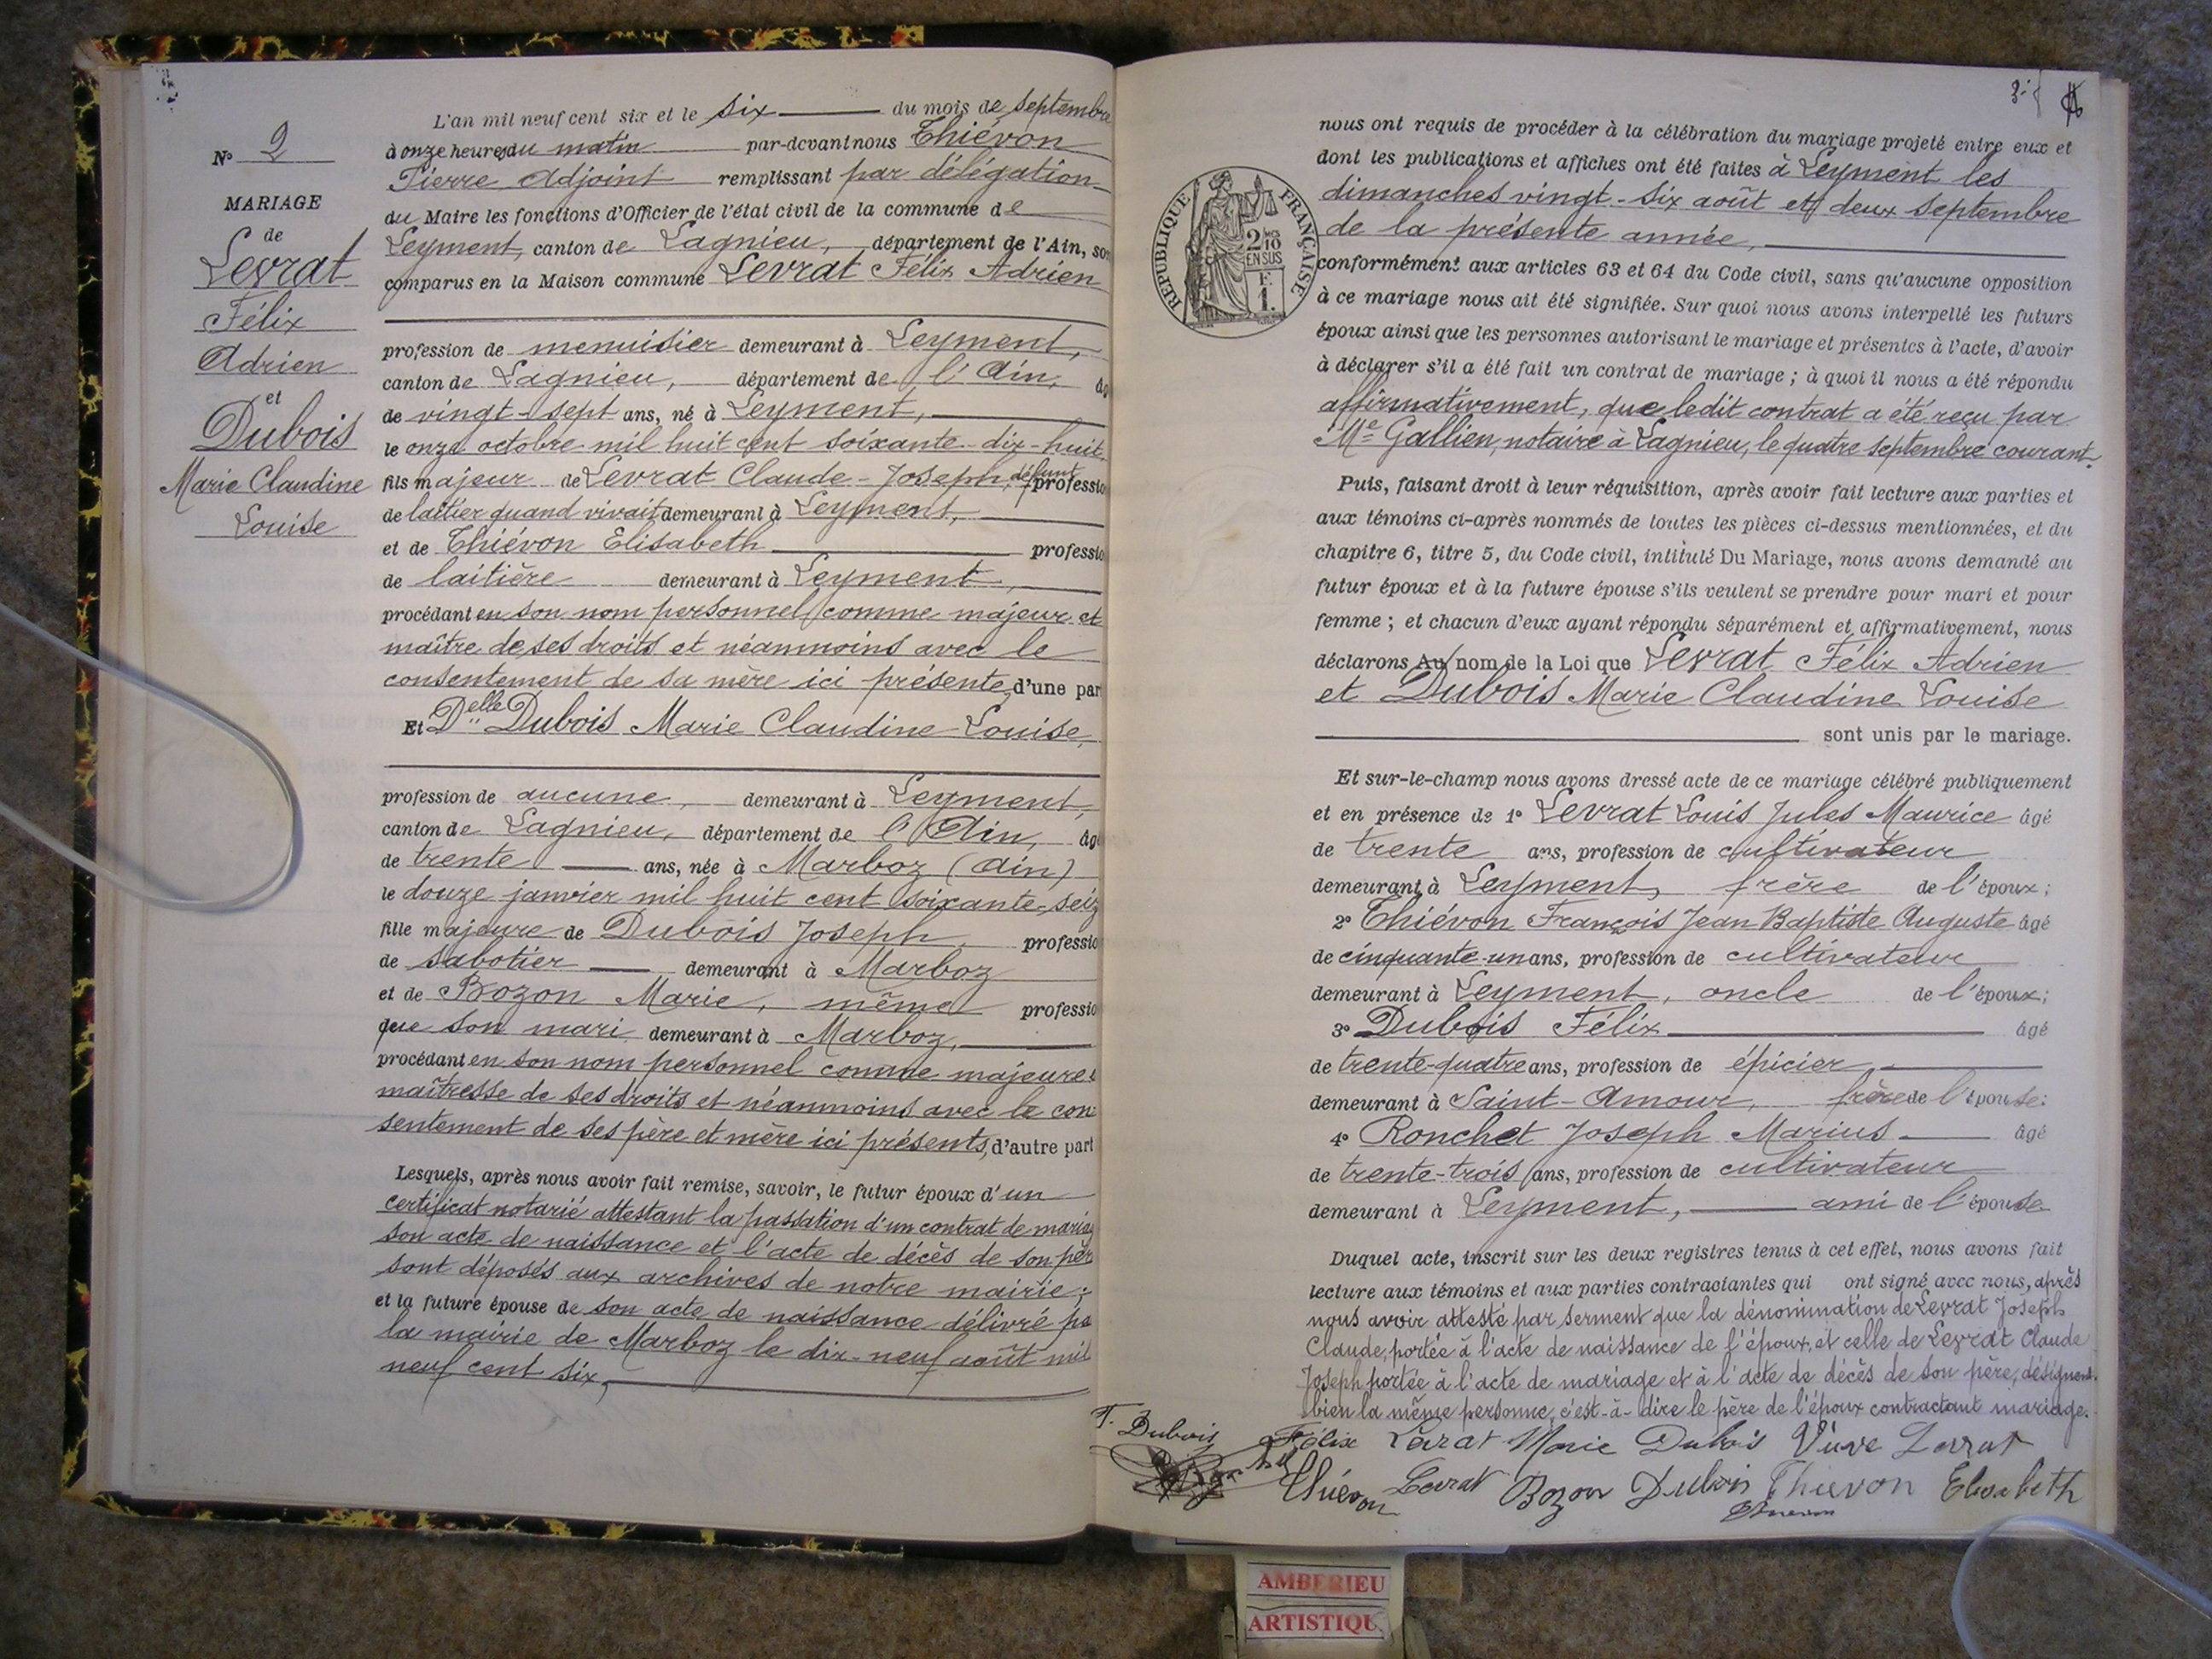 N° 2
MARIAGE
de
Levrat
Félix
Adrien
et
Dubois
Marie Claudine
Louise
L'an mil neuf cent six et le six du mois de septembre
à onze heures du matin par-devant nous Thiévon
Pierre Adjoint remplissant par délégation
du Maire les fonctions d'Officier de l'état civil de la commune de
Leyment, canton de Lagnieu, département de l'Ain, son
comparus en la Maison commune Levrat Félix Adrien
profession de menuisier demeurant à Leyment,
canton de Lagnieu, département de l'Ain, âg
de vingt-sept ans, né à Leyment,
le onze octobre mil huit cent soixante-dix-huit
fils majeur de Levrat Claude-Joseph, défunt professio
de laitier quand vivait demeurant à Leyment,
et de Thiévon Elisabeth professio
de laitière demeurant à Leyment,
procédant en son nom personnel comme majeur et
maître de ses droits et néanmoins avec le
consentement de sa mère ici présente, d'une par
Et Delle Dubois Marie Claudine Louise,
profession de aucune, demeurant à Leyment,
canton de Lagnieu, département de l'Ain, âgé
de trente ans, née à Marboz (Ain)
le douze janvier mil huit cent soixante-seiz
fille majeure de Dubois Joseph, professio
de sabotier demeurant à Marboz
et de Bozon Marie, même professio
que son mari demeurant à Marboz,
procédant en son nom personnel comme majeure &
maîtresse de ses droits et néanmoins avec le con
sentement de ses père et mère ici présents, d'autre part
Lesquels, après nous avoir fait remise, savoir, le futur époux d'un
certificat notarié attestant la passation d'un contrat de mariag
son acte de naissance et l'acte de décès de son pèr
sont déposés aux archives de notre mairie;
et la future épouse de son acte de naissance délivré pa
la mairie de Marboz le dix-neuf août mil
neuf cent six,
nous ont requis de procéder à la célébration du mariage projeté entre eux et
dont les publications et affiches ont été faites à Leyment les
dimanches vingt-six août et deux septembre
de la présente année,
RÉPUBLIQUE FRANÇAISE
2/10
EN SUS
F.
1.
conformément aux articles 63 et 64 du Code civil, sans qu'aucune opposition
à ce mariage nous ait été signifiée. Sur quoi nous avons interpellé les futurs
époux ainsi que les personnes autorisant le mariage et présentes à l'acte, d'avoir
à déclarer s'il a été fait un contrat de mariage; à quoi il nous a été répondu
affirmativement, que ledit contrat a été reçu par
Me Gallien, notaire à Lagnieu, le quatre septembre courant.
Puis, faisant droit à leur réquisition, après avoir fait lecture aux parties et
aux témoins ci-après nommés de toutes les pièces ci-dessus mentionnées, et du
chapitre 6, titre 5, du Code civil, intitulé Du Mariage, nous avons demandé au
futur époux et à la future épouse s'ils veulent se prendre pour mari et pour
femme; et chacun d'eux ayant répondu séparément et affirmativement, nous
déclarons Au nom de la Loi que Levrat Félix Adrien
et Dubois Marie Claudine Louise
sont unis par le mariage.
Et sur-le-champ nous avons dressé acte de ce mariage célébré publiquement
et en présence de 1° Levrat Louis Jules Maurice âgé
de trente ans, profession de cultivateur
demeurant à Leyment, frère de l'époux;
2° Thiévon François Jean Baptiste Auguste âgé
de cinquante-un ans, profession de cultivateur
demeurant à Leyment, oncle de l'époux;
3° Dubois Félix âgé
de trente-quatre ans, profession de épicier
demeurant à Saint-Amour, frère de l'épouse;
4° Ronchet Joseph Marius âgé
de trente-trois ans, profession de cultivateur
demeurant à Leyment, ami de l'épouse
Duquel acte, inscrit sur les deux registres tenus à cet effet, nous avons fait
lecture aux témoins et aux parties contractantes qui ont signé avec nous, après
nous avoir attesté par serment que la dénomination de Levrat Joseph
Claude, portée à l'acte de naissance de l'époux, et celle de Levrat Claude
Joseph portée à l'acte de mariage et à l'acte de décès de son père, désignent
bien la même personne, c'est-à-dire le père de l'époux contractant mariage.
F. Dubois Félix Levrat Marie Dubois Vve Levrat
Thiévon Levrat Bozon Dubois Thievon Elisabeth
AMBERIEU
ARTISTIQU